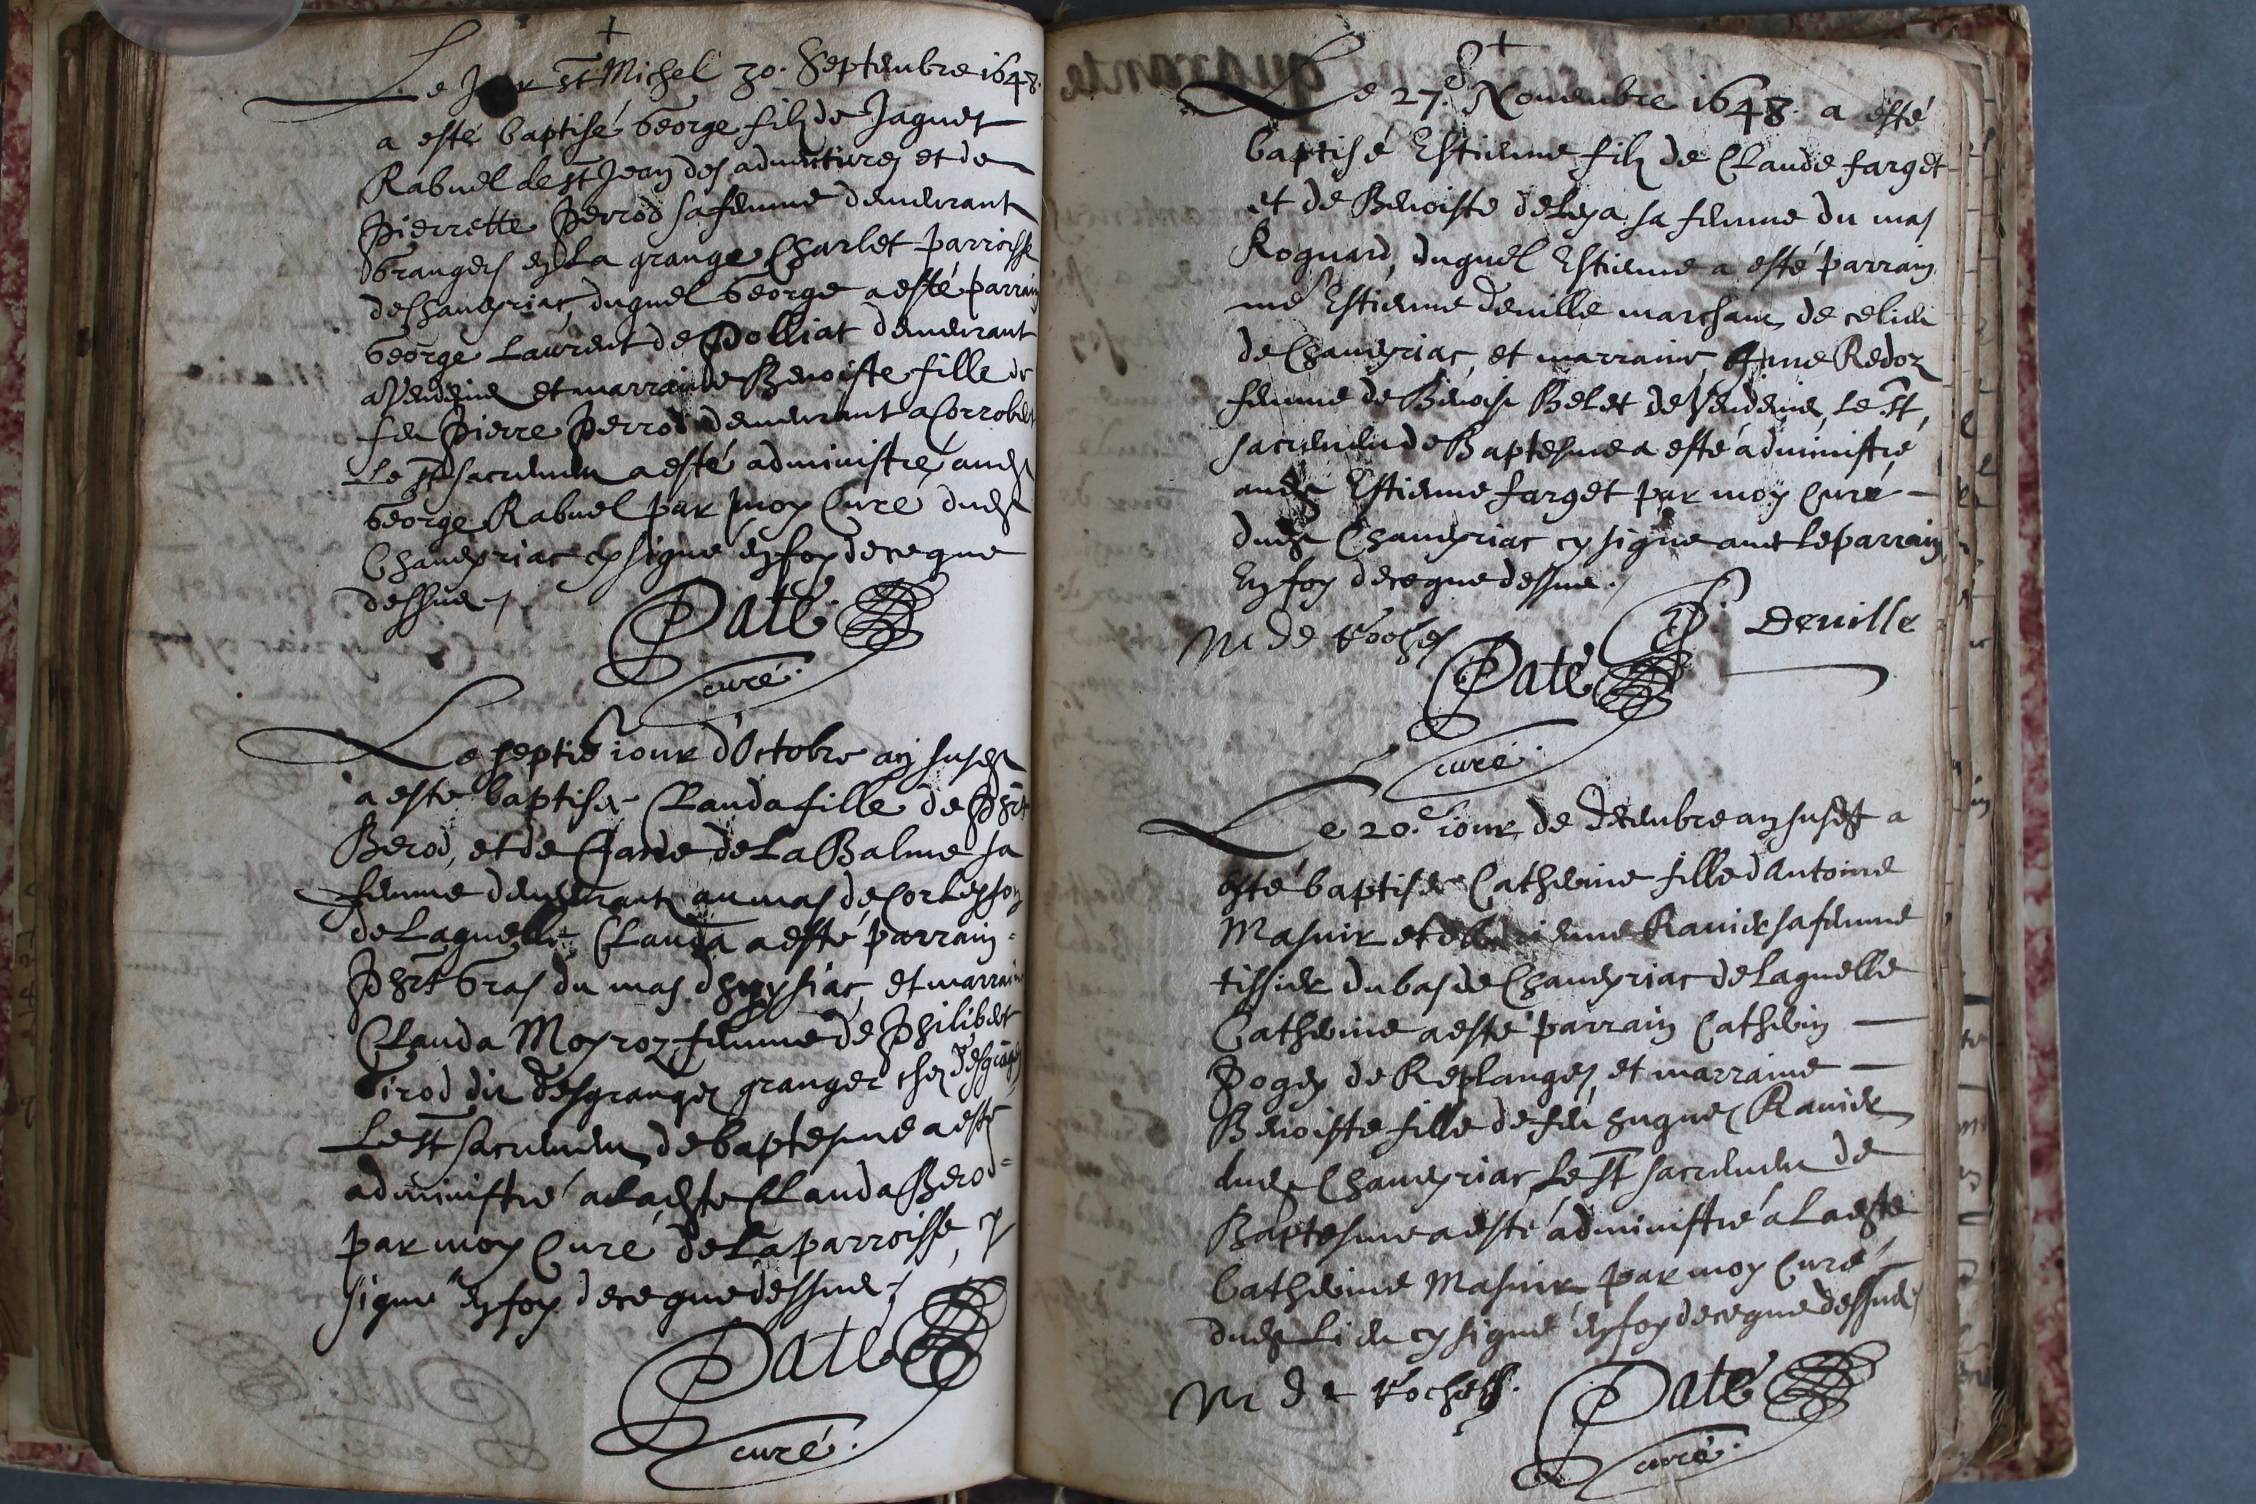 +
Le Jour St Michel 30. Septembre 1648.
a esté baptisé George filz de Jaquet
Rabuel de St Jean des adventures et de
Pierrette Perrod sa femme demeurant
Grangers en La grange Charlet parroisse
de Chaveyriac, duquel George a esté parrain
George Laurent de Polliat demeurant
a Vendeins et marraine Benoiste fille de
feu Pierre Perrod demeurant a Corrobert
Le St sacremen a esté administré aud
George Rabuel par moy Curé dud
Chaveyriac cy signé en foy de ce que
dessus
Paté
curé.
Le septie iour d'Octobre an susd
a esté baptisée Clauda fille de Phrt
Berod, et de Claude de La Balme sa
femme demeurant au mas de Corleyson
de Laquelle Clauda a esté parrain
Phrt Gras du mas et marraine
Clauda Moyroz femme de Philibert
Tirod dit desgranges granger chez desgranges
Le St Sacremen de baptesme a esté
administré a ladte Clauda Berod
par moy Curé de La parroisse, cy
signé en foy de ce que dessus
Paté
curé.
+
Le 27.e Novembre 1648. a esté
baptisé Estienne filz de Claude farget
et de Benoiste deLeya sa femme du mas
Roguard, duquel Estienne a esté parrain
me Estienne deville marchant de ce lieu
de Chaveyriac, et marraine Anne Redoz
femme de Benoist Belet de Vendeins, Le St
sacremen de Baptesme a esté administré
aud Estienne farget par moy Curé
dud Chaveyriac cy signé avec le parrain
En foy de ce que dessus.
M de Roches
Deville
Paté
curé.
Le 20.e iour de decembre an susd a
esté baptisée Catherine fille d'Antoine
Masuir et de Ravier sa femme
tissier du bas de Chaveyriac de Laquelle
Catherine a esté parrain Catherin
Pogey de Replanges, et marraine
Benoiste fille de feu hugues Ravier
dud Chaveyriac, Le St sacremen de
Baptesme a esté administré a Ladte
Catherine Masuir par moy Curé
dud Lieu cy signé en foy de ce que dessus
M de Roches.
Paté
curé.